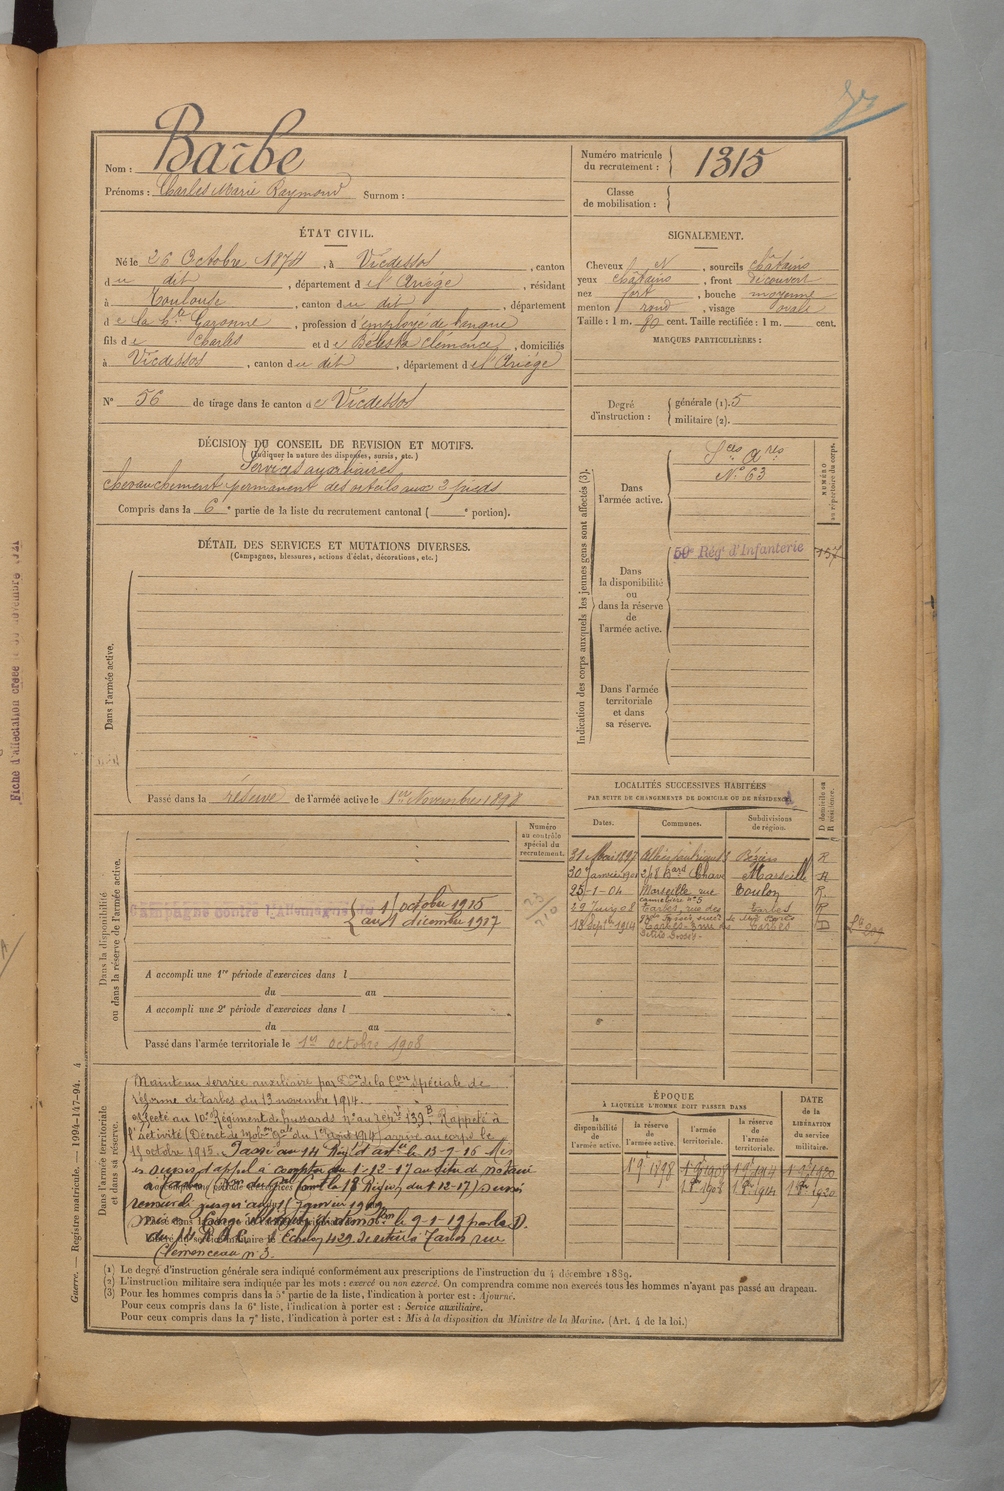 Nom : Barbe
Prénoms : Charles Marie Raymond Surnom :
Numéro matricule du recrutement : 1315
Classe de mobilisation :
ÉTAT CIVIL.
Né le 26 Octobre 1874, à Vicdessos, canton
du dit, département de l'Ariège, résidant
à Toulouse, canton du dit, département
de la hte Garonne, profession d'employé de banque
fils de Charles et de Clémence, domiciliés
à Vicdessos, canton du dit, département de l'Ariège
N° 56 de tirage dans le canton de Vicdessos
SIGNALEMENT.
Cheveux N, sourcils châtains
yeux châtains, front découvert
nez fort, bouche moyenne
menton rond, visage ovale
Taille : 1 m. 80 cent. Taille rectifiée : 1 m. cent.
MARQUES PARTICULIÈRES :
Degré d'instruction : générale (1). 5
militaire (2).
DÉCISION DU CONSEIL DE REVISION ET MOTIFS.
(Indiquer la nature des dispenses, sursis, etc.)
Services auxiliaires
chevauchement permanent des orteils aux 2 pieds
Compris dans la 6e partie de la liste du recrutement cantonal ( e portion).
DÉTAIL DES SERVICES ET MUTATIONS DIVERSES.
(Campagnes, blessures, actions d'éclat, décorations, etc.)
Dans l'armée active.
Passé dans la réserve de l'armée active le 1er Novembre 1898
Indication des corps auxquels les jeunes gens sont affectés (3).
NUMÉRO au répertoire du corps.
Dans l'armée active.
Sces Ares
N° 63
Dans la disponibilité ou dans la réserve de l'armée active.
59e Rég t d'Infanterie 137
Dans l'armée territoriale et dans sa réserve.
LOCALITÉS SUCCESSIVES HABITÉES
PAR SUITE DE CHANGEMENTS DE DOMICILE OU DE RÉSIDENCE.
D domicile ou R résidence.
Dates. Communes. Subdivisions de région.
31 Mai 1897 Béziers R
30 Janvier 1901 248 Bard Chave Marseille R
25-1-04 Marseille rue Toulon R
cannebière n° 5
29 Juin 08 Tarbes, rue des Tarbes R
18 Septre 1914 Tarbes rue des Tarbes D
Petits fossés
Dans la disponibilité ou dans la réserve de l'armée active.
Numéro au contrôle spécial du recrutement.
Campagne contre l'Allemagne du 11 octobre 1915
au 1 décembre 1917
A accompli une 1re période d'exercices dans l
du au
A accompli une 2e période d'exercices dans l
du au
Passé dans l'armée territoriale le 1er octobre 1908
Dans l'armée territoriale et dans sa réserve.
Maintenu service auxiliaire par Don de la Con spéciale de
réforme de Tarbes du 13 novembre 1914.
affecté au 10e Régiment de hussards n° au rept 139 B. Rappelé à
l'activité (Décret de Mobon Gale du 1er août 1914) arrivé au corps le
11 octobre 1915. Passé au 14 Régt d'artie le 13-7-16 Mis
en sursis d'appel à compter du 1-12-17 au titre de notaire
à Tarbes
renouvelé jusqu'au 15 janvier 1919
le 9-1-19 par le D.
du 14 R.A.C. Echelon 429 se retire à Tarbes rue
Clémenceau n° 3.
ÉPOQUE
À LAQUELLE L'HOMME DOIT PASSER DANS
DATE de la LIBÉRATION du service militaire.
la disponibilité de l'armée active. la réserve de l'armée active. l'armée territoriale. la réserve de l'armée territoriale.
1 9e 1898 1 9e 1908 1 9e 1914 1 9e 1920
1 8e 1908 1 8e 1914 1 8e 1920
(1) Le degré d'instruction générale sera indiqué conformément aux prescriptions de l'instruction du 4 décembre 1889.
(2) L'instruction militaire sera indiquée par les mots : exercé ou non exercé. On comprendra comme non exercés tous les hommes n'ayant pas passé au drapeau.
(3) Pour les hommes compris dans la 5e partie de la liste, l'indication à porter est : Ajourné.
Pour ceux compris dans la 6e liste, l'indication à porter est : Service auxiliaire.
Pour ceux compris dans la 7e liste, l'indication à porter est : Mis à la disposition du Ministre de la Marine. (Art. 4 de la loi.)
Guerre. — Registre matricule. — 1994-147-94. 4